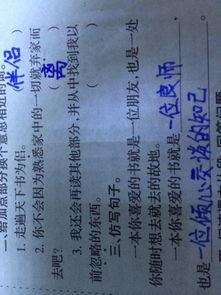 二、给加点部分换个意思相近的词。
1. 走遍天下书为侣。（伴侣）
2. 你不会因为熟悉家中的一切就弃家而
去吧？（离）
3. 我还会再读其他部分，并从中找到我以
前忽略的东西。（
三、仿写句子。
一本你喜爱的书就是一位朋友，也是一处
你随时想去就去的故地。
一本你喜爱的书就是一位良师，
也是一位倾心交谈的知己。